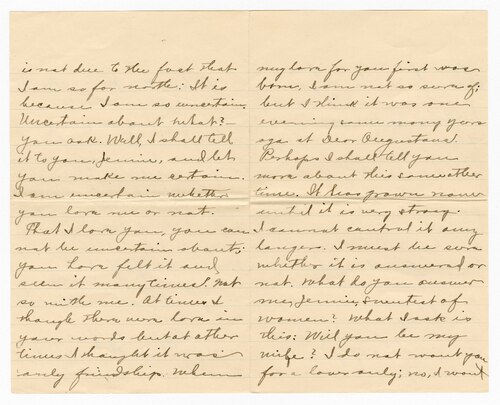 is not due to the fact that
I am so far north: It is
because I am so uncertain.
Uncertain about what? —
you ask. Well, I shall tell
it to you, Jennie, and let
you make me certain.
I am uncertain whether
you love me or not.
That I love you, you can
not be uncertain about;
you have felt it and
seen it many times! Not
so with me. At times I
thought there were love in
your words but at other
times I thought it was
only friendship. When
my love for you first was
born, I am not so sure of;
but I think it was one
evening some many years
ago at Dear Augustana.
Perhaps I shall tell you
more about this some other
time. It has grown now
until it is very strong.
I cannot control it any
longer. I must be sure
whether it is answered or
not. What do you answer
me, Jennie, sweetest of
women? What I ask is
this: Will you be my
wife? I do not want you
for a love only; no, I want